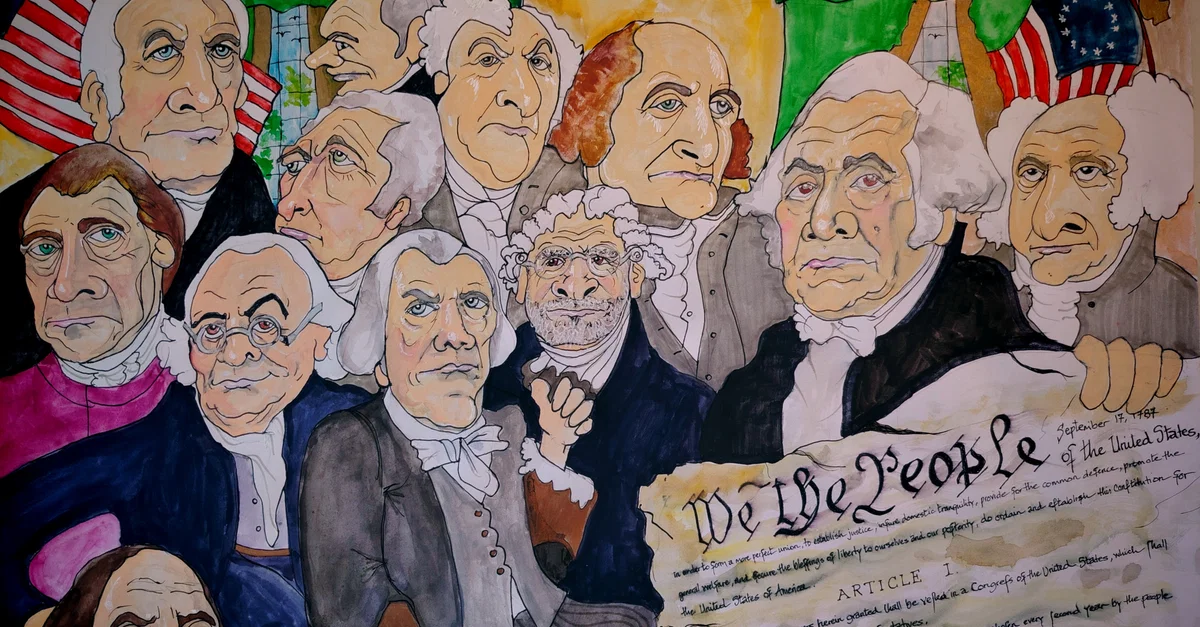 September 17, 1787
We The People of the United States,
in order to form a more perfect union, to establish justice, insure domestic tranquility, provide for the common defence, promote the
general welfare, and secure the blessings of liberty to ourselves and our posterity, do ordain and establish this Constitution for
the United States of America.
ARTICLE I.
herein granted shall be vested in a Congress of the United States, which shall
every second year by the people